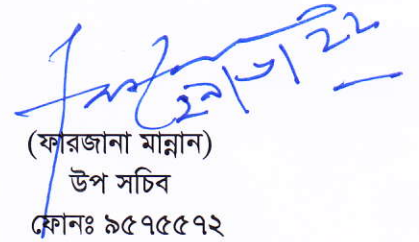 ২৯/৩/২২
(ফারজানা মান্নান)
উপ সচিব
ফোনঃ ৯৫৭৫৫৭২